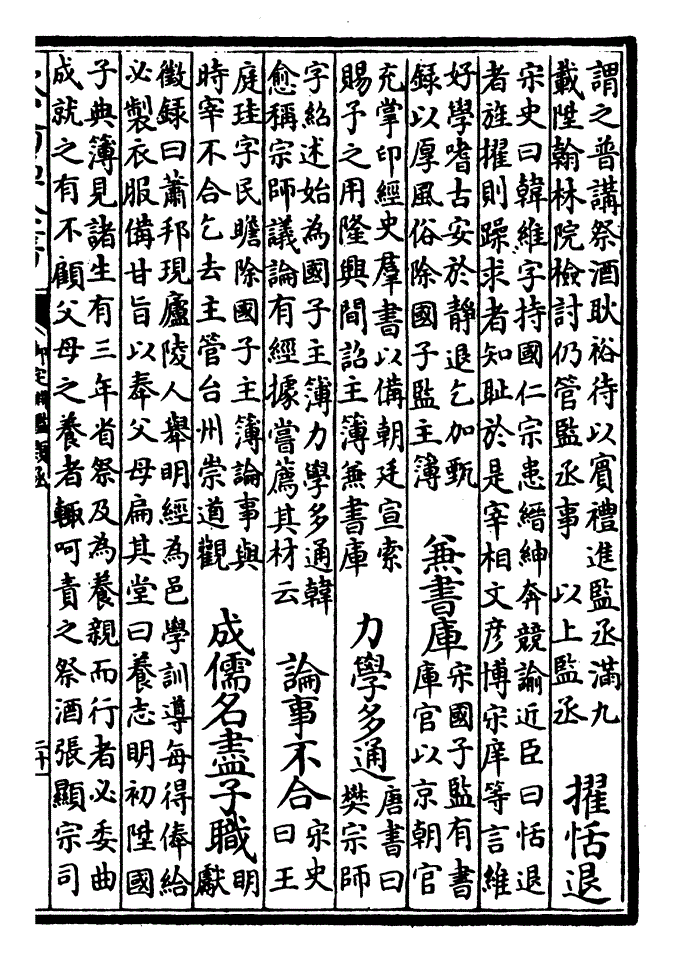 謂之普講祭酒耿裕待以賓禮進監丞滿九
載陞翰林院檢討仍管監丞事　以上監丞
擢恬退
宋史曰韓維字持國仁宗患縉紳奔競諭近臣曰恬退
者旌擢則躁求者知耻於是宰相文彦博宋庠等言維
好學嗜古安於靜退乞加甄
録以厚風俗除國子監主簿
兼書庫
宋國子監有書
庫官以京朝官
充掌印經史羣書以備朝廷宣索
賜予之用隆興間詔主簿兼書庫
力學多通
唐書曰
樊宗師
字紹述始為國子主簿力學多通韓
愈稱宗師議論有經據嘗薦其材云
論事不合
宋史
曰王
庭珪字民瞻除國子主簿論事與
時宰不合乞去主管台州崇道觀
成儒名盡子職
明
獻
徵録曰蕭邦現廬陵人舉明經為邑學訓導每得俸給
必製衣服備甘旨以奉父母扁其堂曰養志明初陞國
子典簿見諸生有三年省祭及為養親而行者必委曲
成就之有不顧父母之養者輙呵責之祭酒張顯宗司